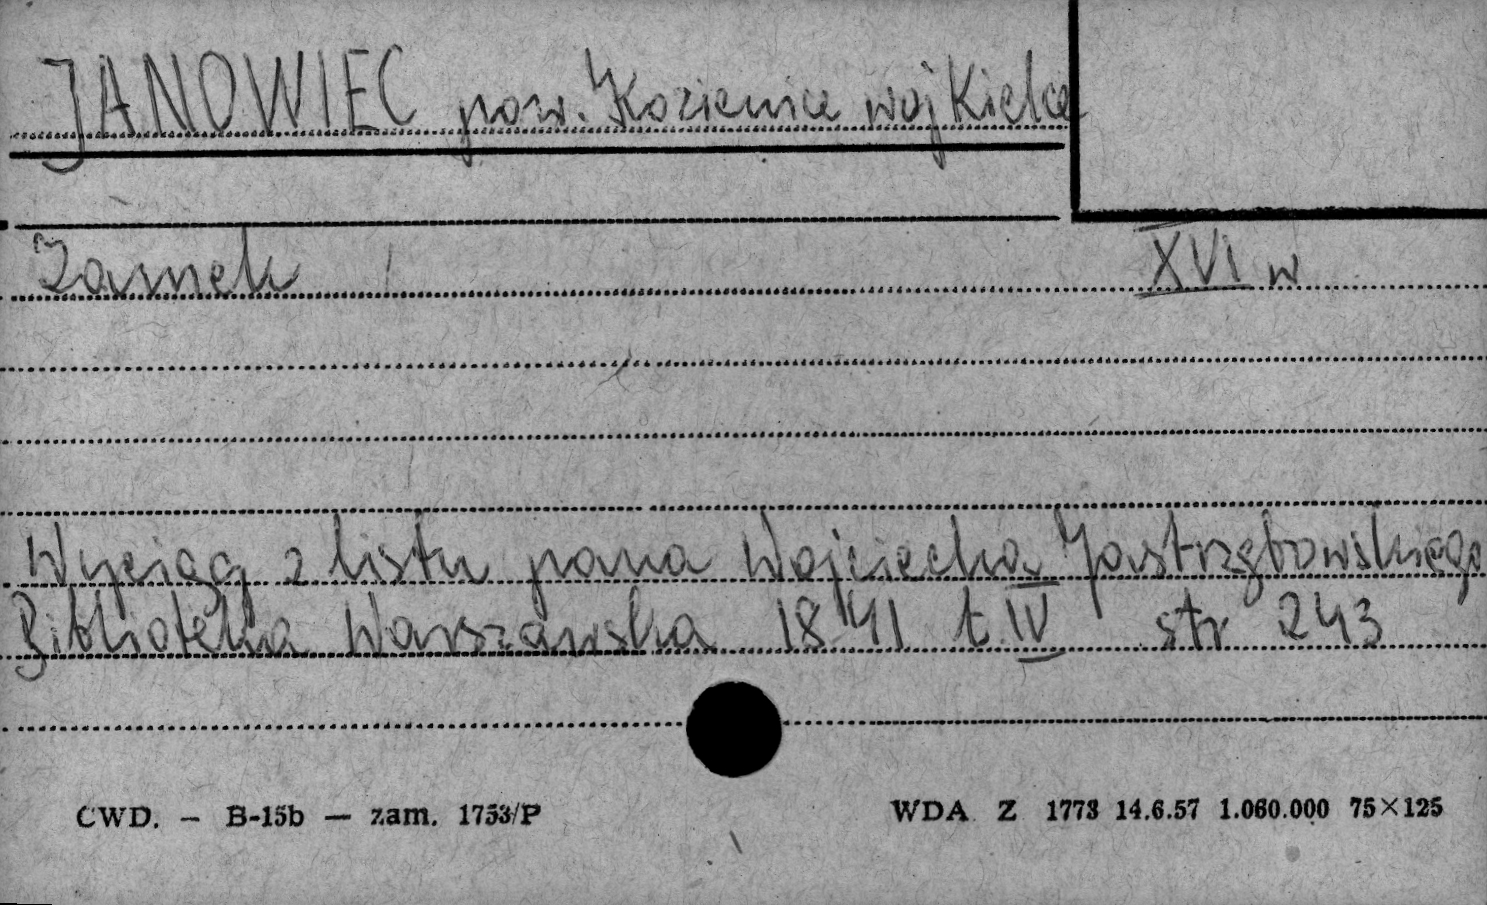 JANOWIEC pow. Kozienice woj Kielce
Zamek XVI w
Wyciąg z listu pana Wojciecha Jastrzębowskiego
Biblioteka Warszawska 1841 t. IV str 243
CWD. — B-15b — zam. 1753/P WDA Z 1773 14.6.57 1.060.000 75×125